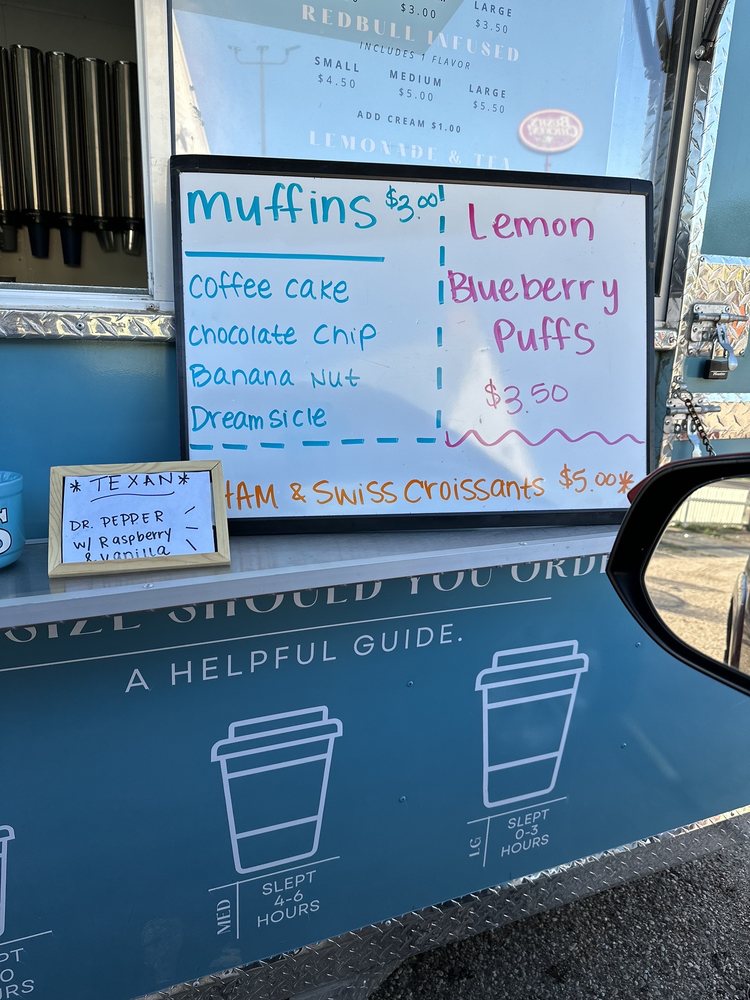 LARGE
$3.00
$3.50
REDBULL INFUSED
INCLUDES 1 FLAVOR
SMALL MEDIUM LARGE
$4.50 $5.00 $5.50
ADD CREAM $1.00
LEMONADE & TEA
muffins $3.00
Coffee cake
Chocolate Chip
Banana Nut
Dreamsicle
Lemon
Blueberry
Puffs
$3.50
HAM & Swiss Croissants $5.00*
*TEXAN*
DR. PEPPER
W/ Raspberry
& Vanilla
SIZE SHOULD YOU ORDE
A HELPFUL GUIDE.
MED
SLEPT
4-6
HOURS
LG
SLEPT
0-3
HOURS